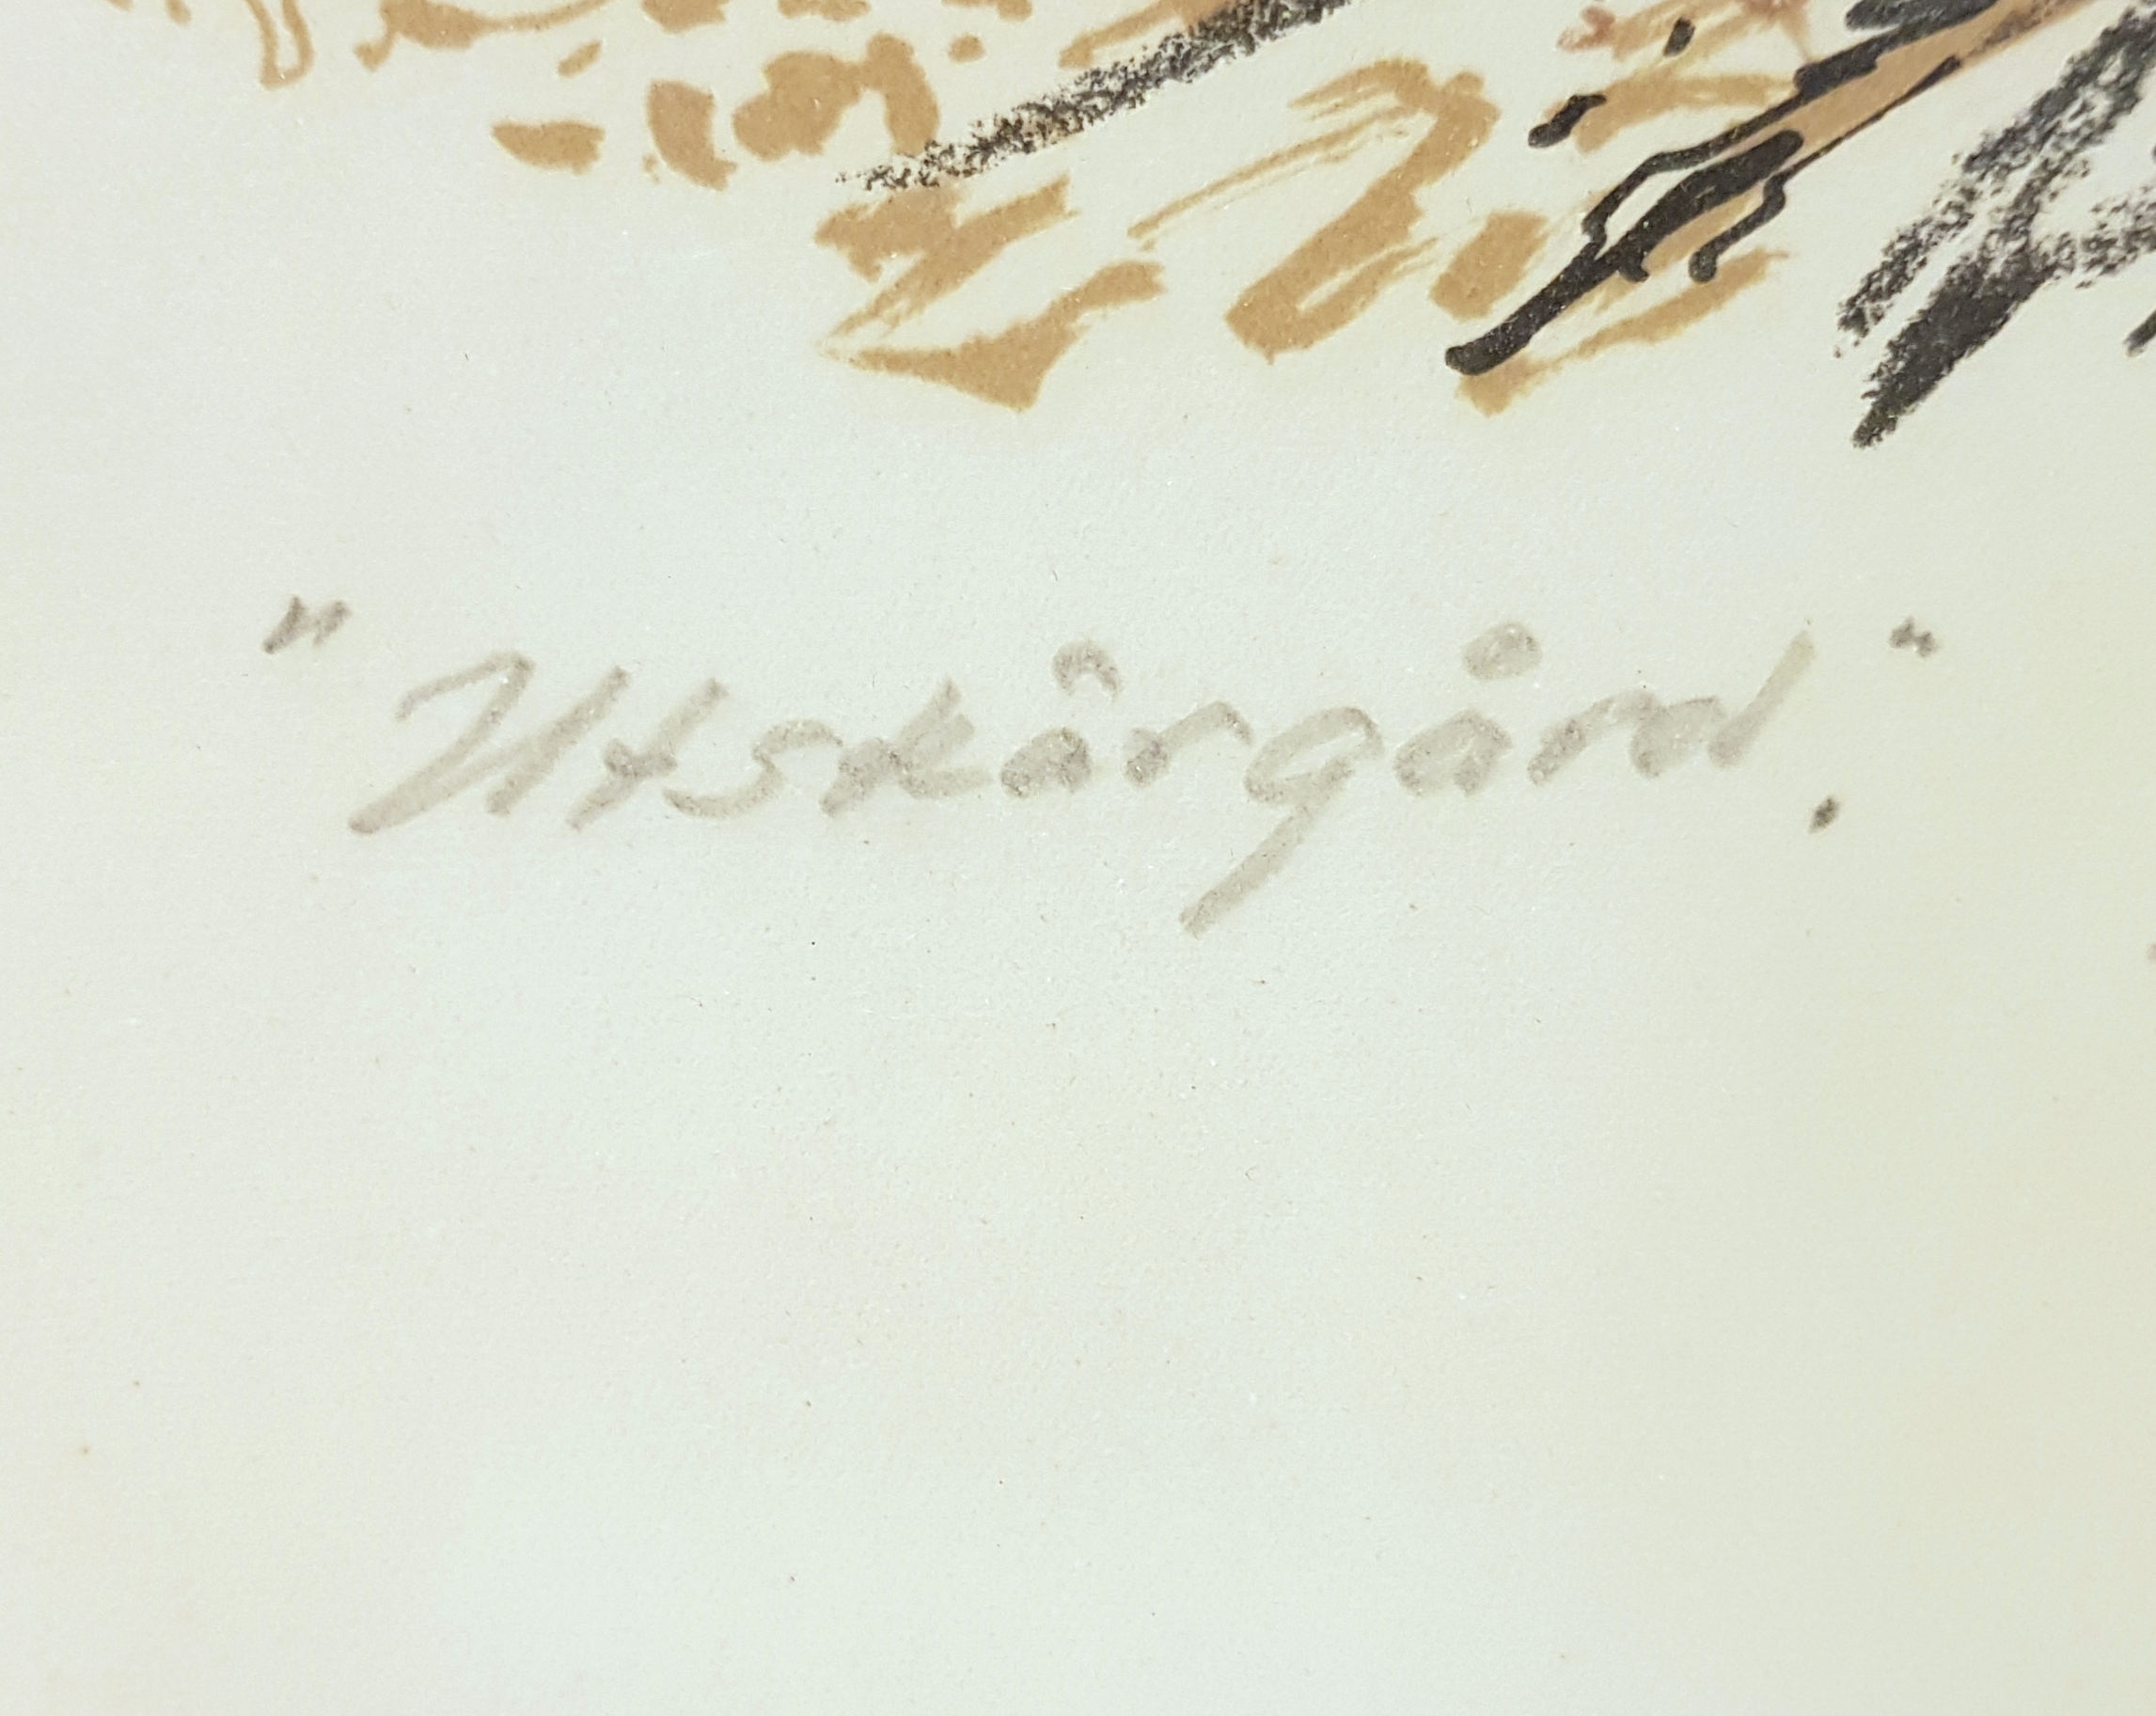 "Utskärgård."